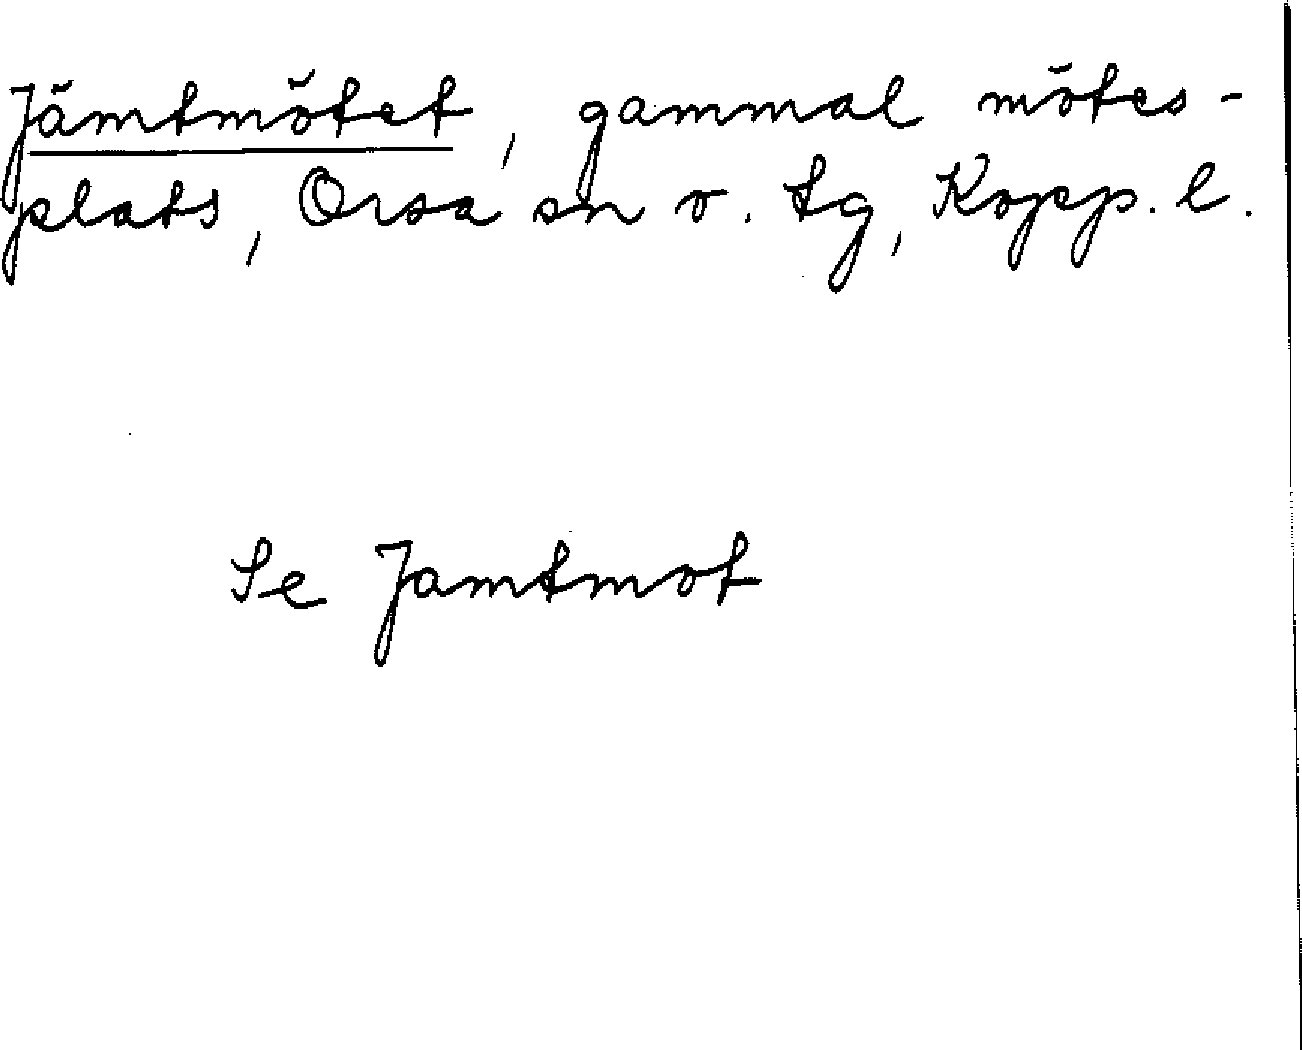 Jämtmötet, gammal mötes-
plats, Orsa sn o. tg, Kopp. l.
Se Jamtmot